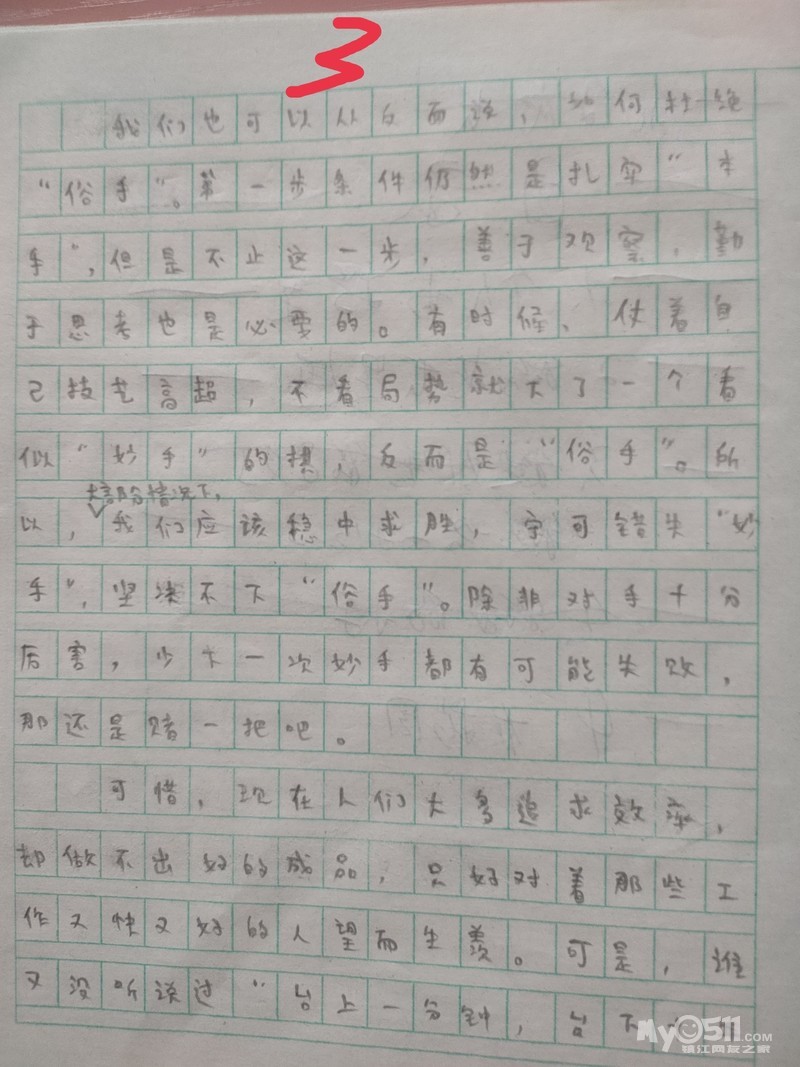 3
我们也可以从反面说，如何杜绝
“俗手”。第一步条件仍然是扎实“本
手”，但是不止这一步，善于观察，勤
于思考也是必要的。有时候，仗着自
己技艺高超，不看局势就下了一个看
似“妙手”的棋，反而是“俗手”。所
大部分情况下，
以，我们应该稳中求胜，宁可错失“妙
手”，坚决不下“俗手”。除非对手十分
厉害，少下一次妙手都有可能失败，
那还是赌一把吧。
可惜，现在人们大多追求效率，
却做不出好的成品，只好对着那些工
作又快又好的人望而生羡。可是，谁
又没听说过“台上一分钟，台下
My0511.COM
镇江网友之家